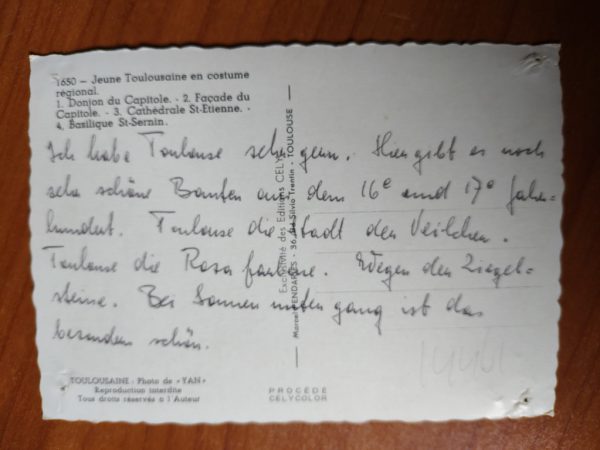 1650 – Jeune Toulousaine en costume
régional.
1. Donjon du Capitole. - 2. Façade du
Capitole. - 3. Cathédrale St-Etienne. -
4. Basilique St-Sernin.
Ich habe Toulouse sehr gern. Hier gibt es noch
sehr schöne Bauten aus dem 16e und 17e Jahr-
hundert. Toulouse die Stadt der Veilchen.
Toulouse die Rosa farbene. Wegen den Ziegel-
steine. Bei Sonnenuntergang ist das
besonders schön.
TOULOUSAINE : Photo de «YAN»
Reproduction interdite
Tous droits réservés à l'Auteur
PROCÉDÉ
CELYCOLOR
Exclusivité des Editions CELY
Marcel PENDARIES - 36, Bd Silvio Trentin - TOULOUSE